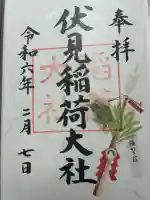 奉拝
伏見稲荷大社
令和六年二月七日